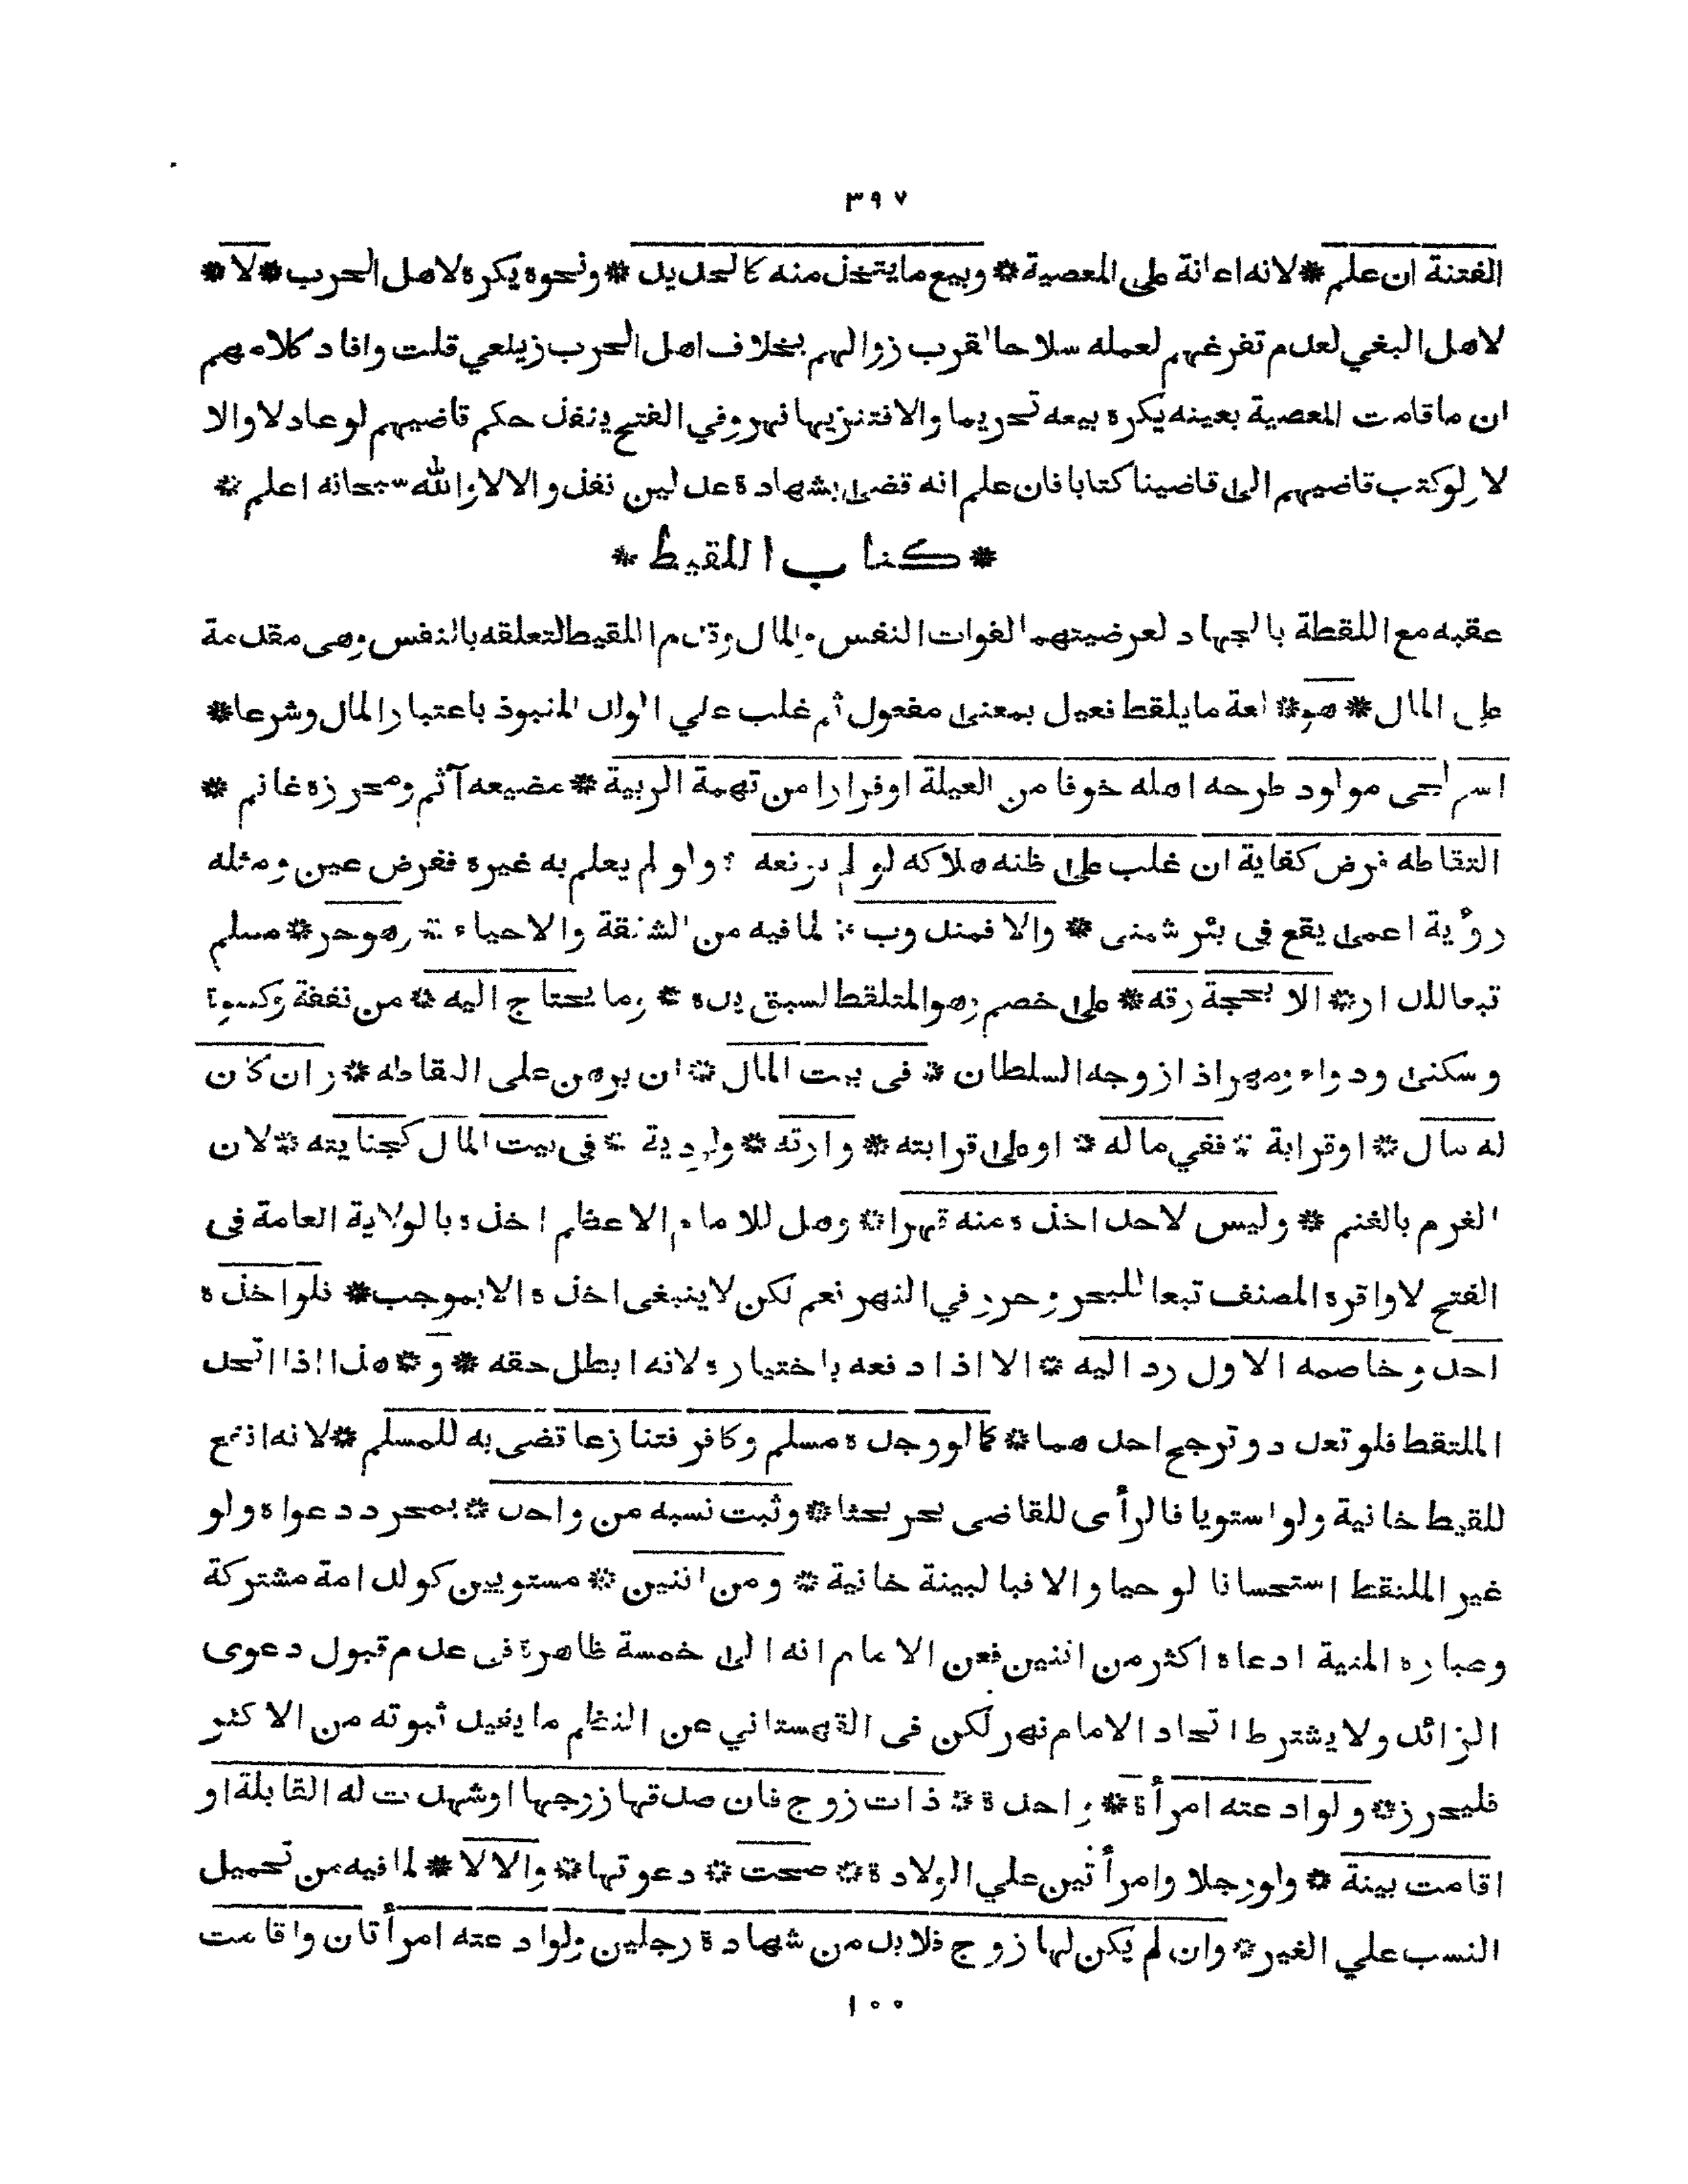 ٣٩٧
الفتنة ان علم * لانه اعانة على المعصية * وبيع مايتخذ منه كالحديد * ونحوه يكره لاهل الحرب * لا *
لاهل البغي لعدم تفرغهم لعمله سلاحا لقرب زوالهم بخلاف اهل الحرب زيلعي قلت وافاد كلامهم
ان ماقامت المعصية بعينه يكره بيعه تحريما والا فتنزيها نهر وفي الفتح ينفذ حكم قاضيهم لو عادلا والا
لا ولو كتب قاضيهم الى قاضينا كتابا فان علم انه قضى بشهادة عدلين نفذ والا لا والله سبحانه اعلم *
* كتاب اللقيط *
عقبه مع اللقطة بالجهاد لعرضيتهما لفوات النفس والمال وقدم اللقيط لتعلقه بالنفس وهى مقدمة
على المال * هو * لغة مايلقط فعيل بمعنى مفعول ثم غلب علي الولد المنبوذ باعتبار المال وشرعا *
اسم لحى مولود طرحه اهله خوفا من العيلة اوفرارا من تهمة الريبة * مضيعه آثم ومحرزه غانم *
التقاطه فرض كفاية ان غلب على ظنه هلاكه لو لم يرفعه * ولو لم يعلم به غيره ففرض عين ومثله
رؤية اعمى يقع فى بئر شمنى * والا فمندوب * لمافيه من الشفقة والاحياء * وهوحر * مسلم
تبعا للدار * الا بحجة رقه * على خصم وهو الملتقط لسبق يده * وما يحتاج اليه * من نفقة وكسوة
وسكنى ودواء ومهر اذا زوجه السلطان * فى بيت المال * ان برهن على التقاطه * وان كان
له مال * اوقرابة * ففي ماله * او على قرابته * وارثه * ولو دية * فى بيت المال كجنايته * لان
الغرم بالغنم * وليس لاحد اخذه منه قهرا * وهل للامام الاعظم اخذه بالولاية العامة فى
الفتح لا واقره المصنف تبعا للبحر وحرر في النهر نعم لكن لاينبغى اخذه الا بموجب * فلو اخذه
احد وخاصمه الاول رد اليه * الا اذا دفعه باختياره لانه ابطل حقه * و * هذا اذا اتحد
الملتقط فلو تعدد وترجح احدهما * كما لو وجده مسلم وكافر فتنازعا قضى به للمسلم * لانه انفع
للقيط خانية ولو استويا فالرأى للقاضى بحر بحثا * وثبت نسبه من واحد * بمجرد دعواه ولو
غير الملتقط استحسانا لو حيا والا فبالبينة خانية * ومن اثنين * مستويين كولد امة مشتركة
وعباره المنية ادعاه اكثر من اثنين فعن الامام انه الى خمسة ظاهرة فى عدم قبول دعوى
الزائد ولا يشترط اتحاد الامام نهر لكن فى القهستاني عن النظم ما يفيد ثبوته من الاكثر
فليحرز * ولو ادعته امرأة * واحدة * ذات زوج فان صدقها زوجها اوشهدت له القابلة او
اقامت بينة * ولو رجلا وامرأتين علي الولادة * صحت * دعوتها * والا لا * لما فيه من تحميل
النسب علي الغير * وان لم يكن لها زوج فلابد من شهادة رجلين ولو ادعته امرأتان واقامت
١٠٠